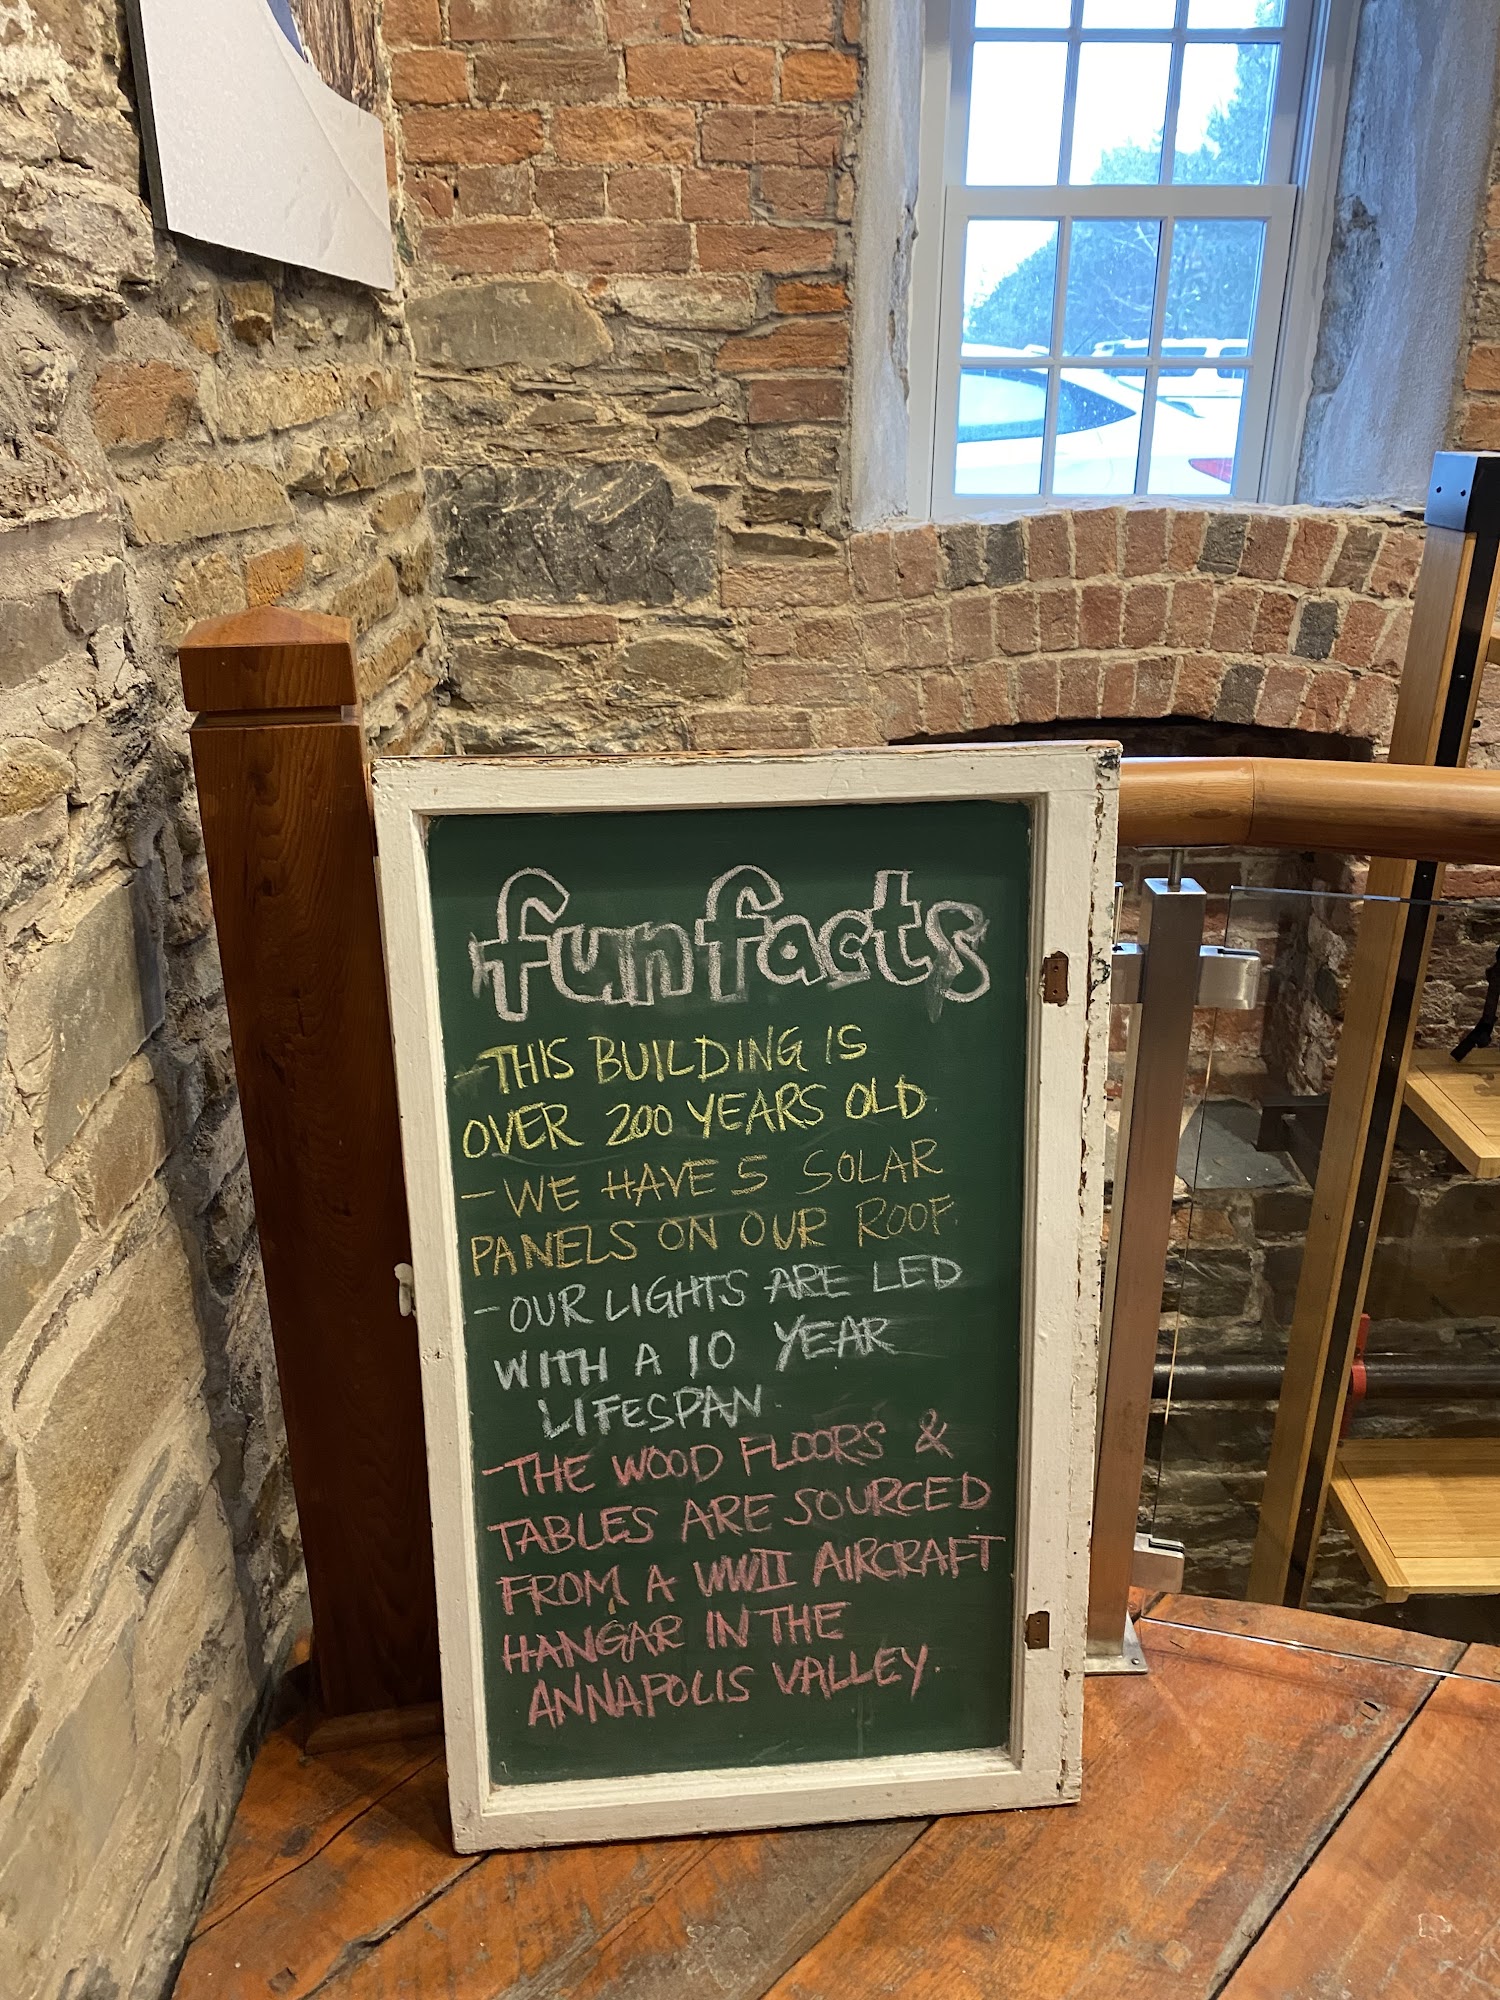 fun facts
-THIS BUILDING IS
OVER 200 YEARS OLD.
-WE HAVE 5 SOLAR
PANELS ON OUR ROOF.
-OUR LIGHTS ARE LED
WITH A 10 YEAR
LIFESPAN.
-THE WOOD FLOORS &
TABLES ARE SOURCED
FROM A WWII AIRCRAFT
HANGAR IN THE
ANNAPOLIS VALLEY.